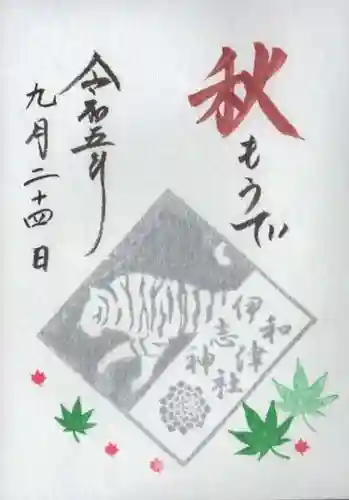 秋
もうで
令和五年
九月二十四日
和
伊津
志社
神